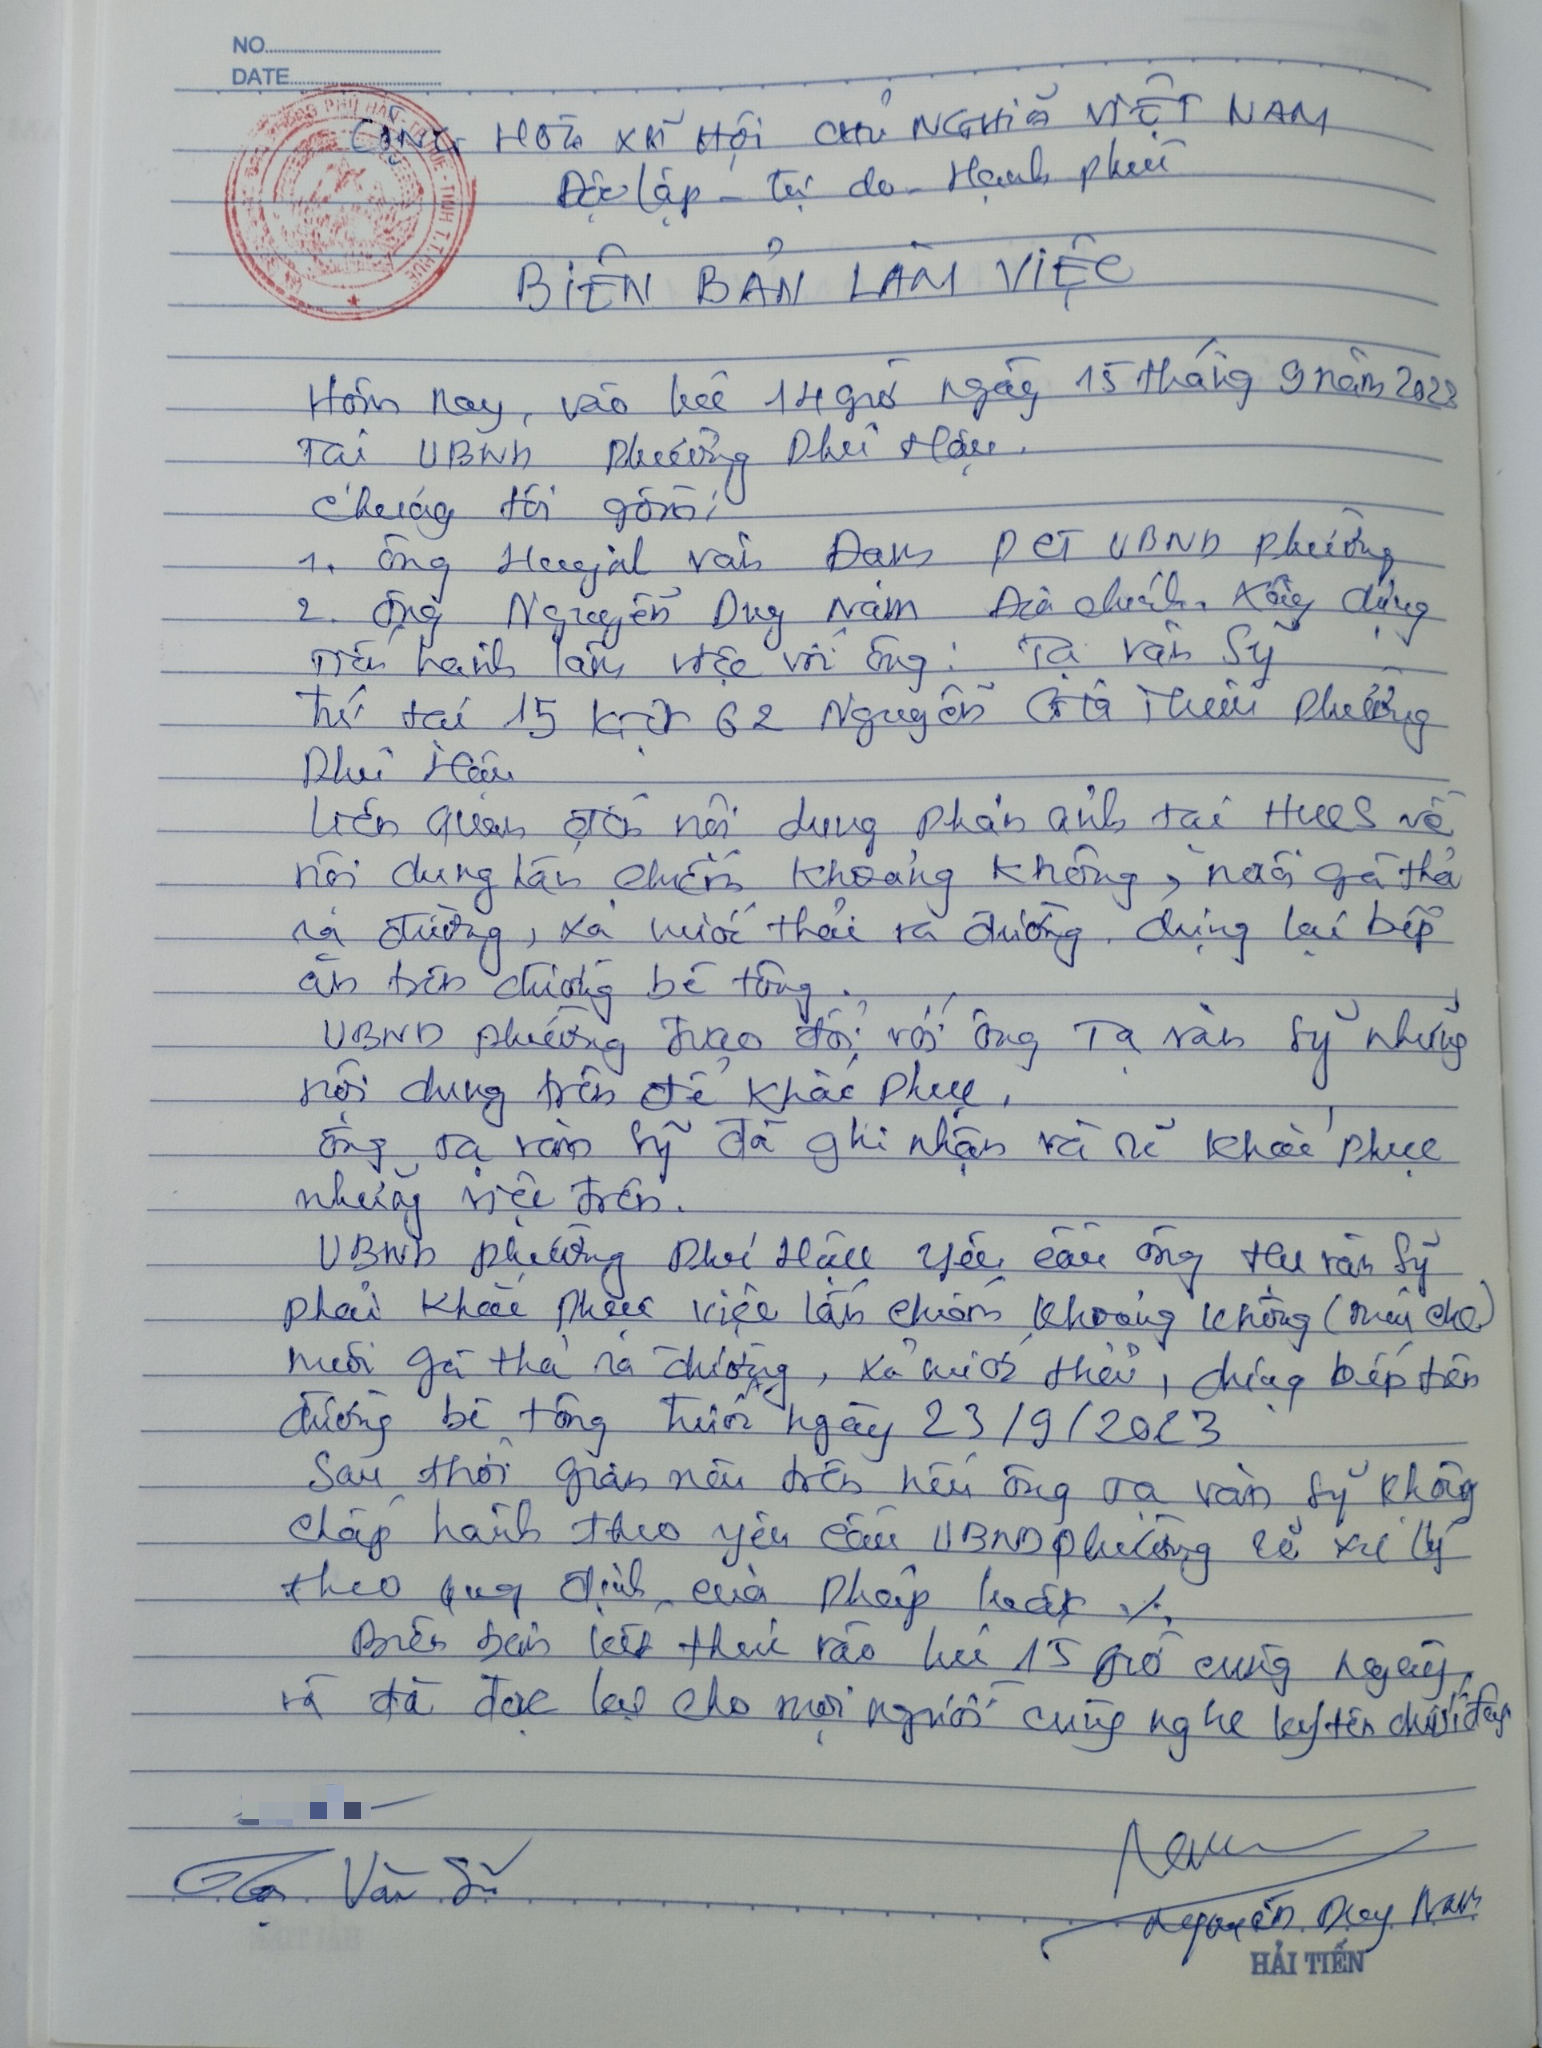 NO
DATE
CỘNG HÒA XÃ HỘI CHỦ NGHĨA VIỆT NAM
Độc lập - Tự do - Hạnh phúc
BIÊN BẢN LÀM VIỆC
Hôm nay, vào lúc 14 giờ ngày 15 tháng 9 năm 2023
Tại UBND phường Phú Hậu.
Chúng tôi gồm:
1. Ông Huỳnh Văn Đam PCT UBND phường
2. Ông Nguyễn Duy Nam Địa chính. Xây dựng
Tiến hành làm việc với ông: Tạ Văn Sỹ
Trú tại 15 kiệt 62 Nguyễn Gia Thiều phường
Phú Hậu
Liên quan đến nội dung phản ánh tại HueS về
nội dung lấn chiếm khoảng không, nuôi gà thả
ra đường, xả nước thải ra đường. dựng lại bếp
ăn trên đường bê tông.
UBND phường trao đổi với ông Tạ Văn Sỹ những
nội dung trên để khắc phục.
Ông Tạ Văn Sỹ đã ghi nhận và sẽ khắc phục
những việc trên.
UBND phường Phú Hậu yêu cầu ông Văn Sỹ
phải khắc phục việc lấn chiếm khoảng không (mái che)
nuôi gà thả ra đường, xả nước thải, dựng bếp trên
đường bê tông trước ngày 23/9/2023
Sau thời gian nêu trên nếu ông Tạ Văn Sỹ không
chấp hành theo yêu cầu UBND phường sẽ xử lý
theo quy định của pháp luật ./.
Biên bản kết thúc vào lúc 15 giờ cùng ngày,
và đã đọc lại cho mọi người cùng nghe ký tên dưới đây
Tạ Văn Sỹ
Nguyễn Duy Nam
HẢI TIẾN